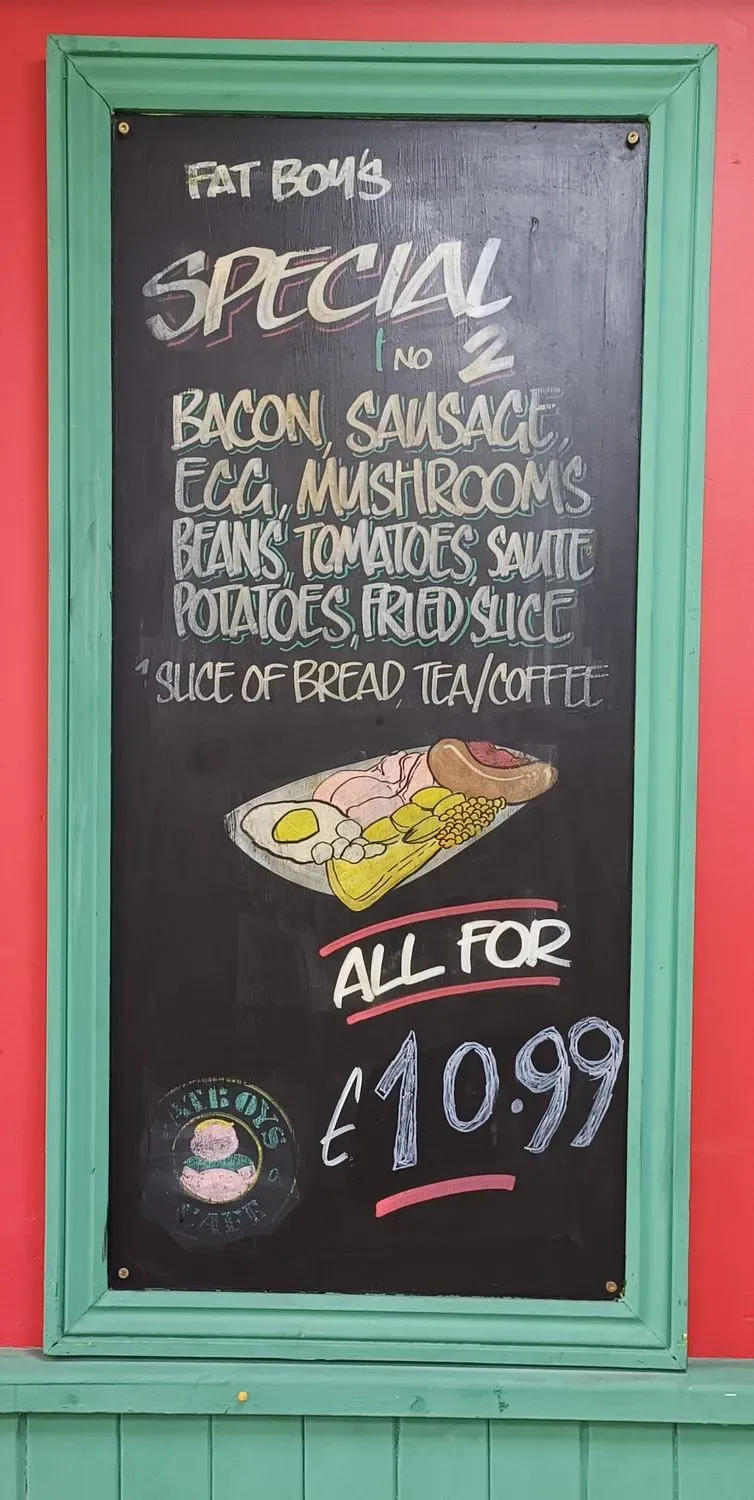 FAT BOY'S
SPECIAL
NO 2
BACON, SAUSAGE,
EGG, MUSHROOMS
BEANS, TOMATOES, SAUTE
POTATOES, FRIED SLICE
1 SLICE OF BREAD, TEA/COFFEE
ALL FOR
£10.99
FATBOYS
CAFE